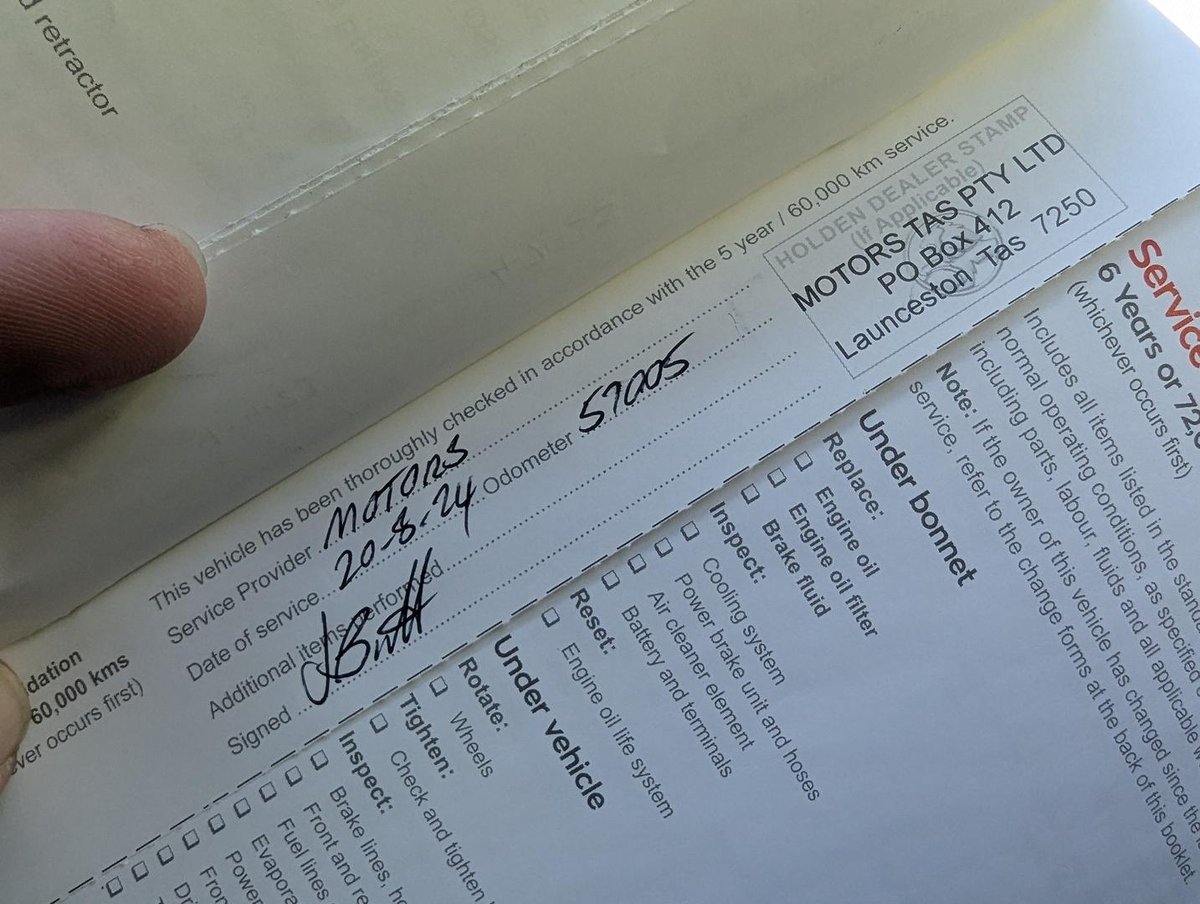 d retractor
This vehicle has been thoroughly checked in accordance with the 5 year / 60,000 km service.
Service Provider MOTORS
Date of service 20-8-24 Odometer 57005
Additional items performed
Signed
HOLDEN DEALER STAMP
(If Applicable)
MOTORS TAS PTY LTD
PO Box 412
Launceston Tas 7250
dation
60,000 kms
ver occurs first)
Service
6 Years or 72,
(whichever occurs first)
Includes all items listed in the
normal operating conditions, as specifie
including parts, labour, fluids and all applicable
Note: If the owner of this vehicle has changed since the
service, refer to the change forms at the back of this booklet.
Under bonnet
Replace:
Engine oil
Engine oil filter
Brake fluid
Inspect:
Cooling system
Power brake unit and hoses
Air cleaner element
Battery and terminals
Reset:
Engine oil life system
Under vehicle
Rotate:
Wheels
Tighten:
Check and tighten
Inspect:
Brake lines, ho
Front and re
Fuel lines
Evapora
Power
Fron
Dri